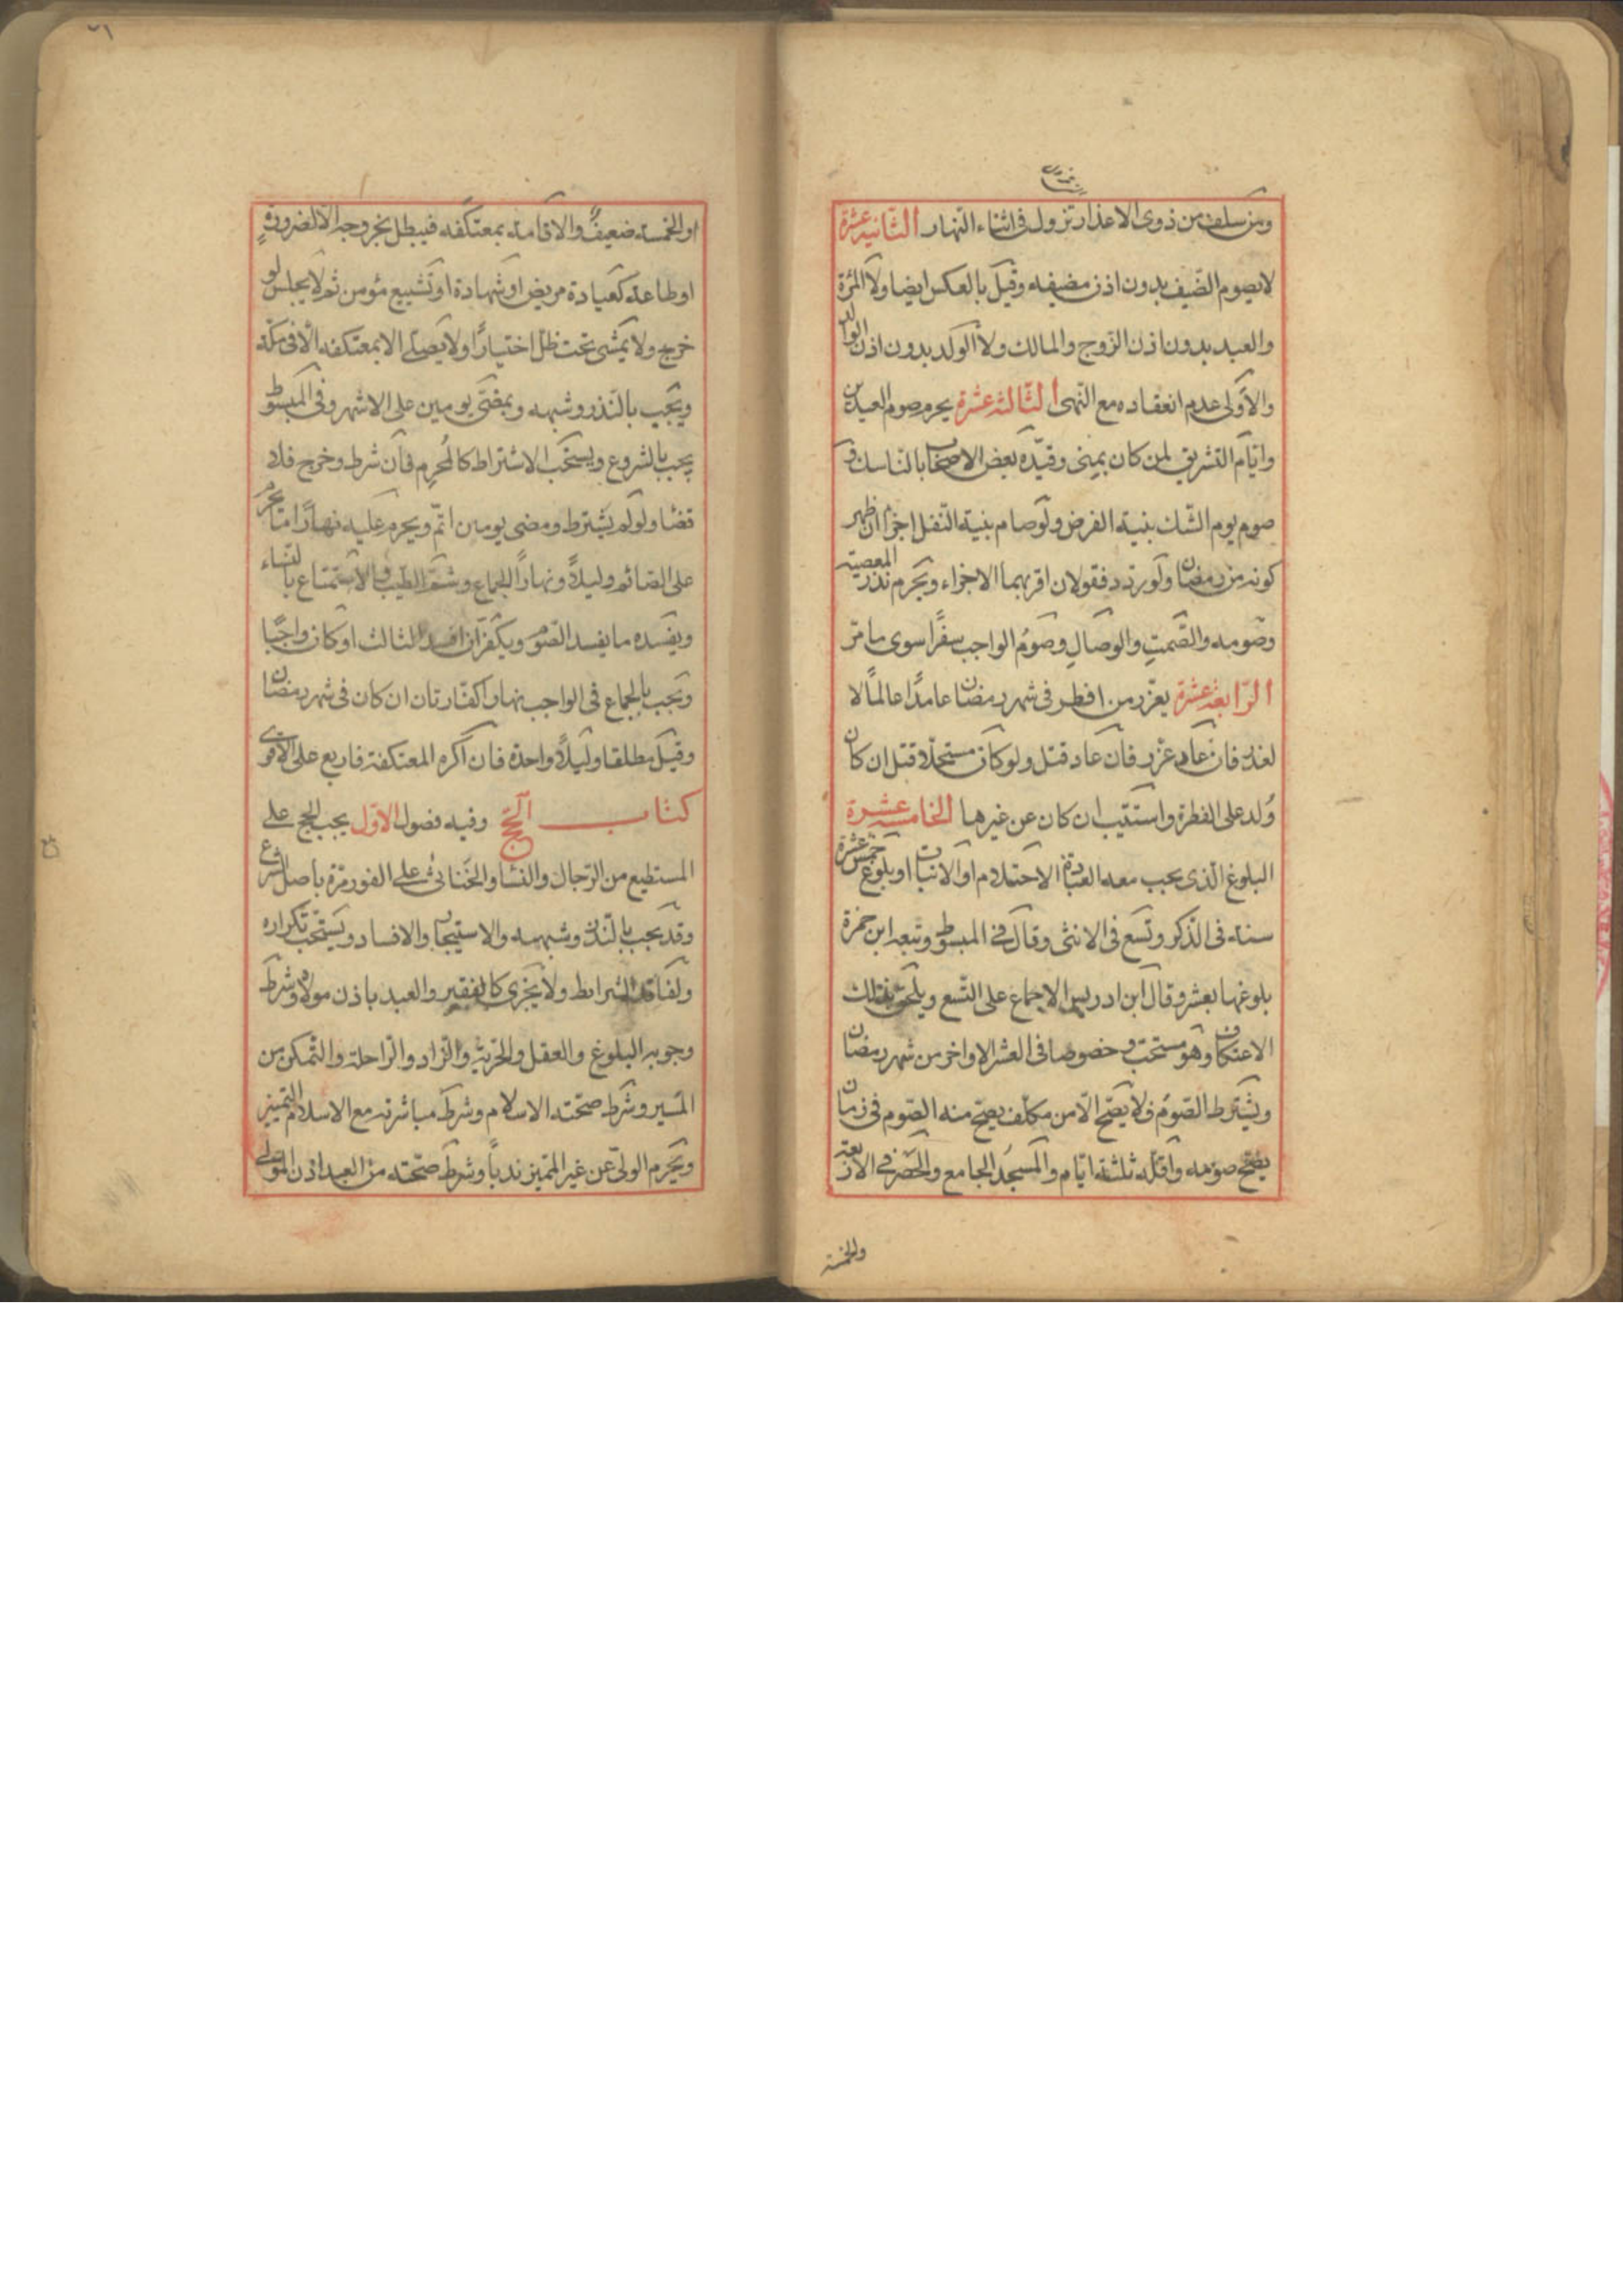 ومن سلف من ذوى الاعذار تزول فى اثناء النهار الثانية عشرة
لا يصوم الضيف بدون اذن مضيفه وقيل بالعكس ايضا ولا المرئة
والعبد بدون اذن الزوج والمالك ولا الولد بدون اذن الوالد
والاولى عدم انعقاده مع النهى الثالثة عشرة يحرم صوم العيدين
وايام التشريق لمن كان بمنى وقيده بعض الاصحاب بالناسك و
صوم يوم الشك بنية الفرض ولو صام بنية النفل اجزأ ان ظهر
كونه من رمضان ولو ردد فقولان اقربهما الاجزاء ويحرم نذر المعصية
وصومه والصمت والوصال وصوم الواجب سفرا سوى ما مر
الرابعة عشرة يعزر من افطر فى شهر رمضان عامدا عالما لا
لعذر فان عاد عزر فان عاد قتل ولو كان مستحلا قتل ان كان
ولد على الفطرة واستتيب ان كان عن غيرها الخامسة عشرة
البلوغ الذى يجب معه العبادة الاحتلام او الانبات او بلوغ خمس عشرة
سنة فى الذكر وتسع فى الانثى وقال فى المبسوط وتبعه ابن حمزة
بلوغها بعشر وقال ابن ادريس الاجماع على التسع ويلحق بذلك
الاعتكاف وهو مستحب وخصوصا فى العشر الاواخر من شهر رمضان
ويشترط الصوم فلا يصح الا من مكلف يصح منه الصوم فى زمان
يصح صومه واقله ثلثة ايام والمسجد الجامع والحصر فى الاربعة
والخمسة
٢٦
او الخمسة ضعيف والاقامة بمعتكفه فيبطل بخروجه الا لضرورة
او طاعة كعيادة مريض او شهادة او تشييع مؤمن ثم لا يجلس لو
خرج ولا يمشى تحت ظل اختيارا ولا يصلى الا بمعتكفه الا فى مكة
ويجب بالنذر وشبهه وبمضى يومين على الاشهر وفى المبسوط
يجب بالشروع ويستحب الاشتراط كالمحرم فان شرط وخرج فلا
قضاء ولو لم يشترط ومضى يومين اتم ويحرم عليه نهارا ما يحرم
على الصائم وليلا ونهارا الجماع وشم الطيب والاستمتاع بالنساء
ويفسده ما يفسد الصوم ويكفر ان افسد الثالث او كان واجبا
ويجب بالجماع فى الواجب نهارا كفارتان ان كان فى شهر رمضان
وقيل مطلقا وليلا واحدة فان اكره المعتكفة فاربع على الاقوى
كتاب الحج وفيه فصول الاول يجب الحج على
المستطيع من الرجال والنساء والخناثى على الفور مرة باصل الشرع
وقد يجب بالنذر وشبهه والاستيجار والافساد ويستحب تكراره
ولفاقد الشرايط ولا يجزى كالفقير والعبد باذن مولاه وشرط
وجوبه البلوغ والعقل والحرية والزاد والراحلة والتمكن من
المسير وشرط صحته الاسلام وشرط مباشرته مع الاسلام التمييز
ويحرم الولى عن غير المميز ندبا وشرط صحته من العبد اذن المولى